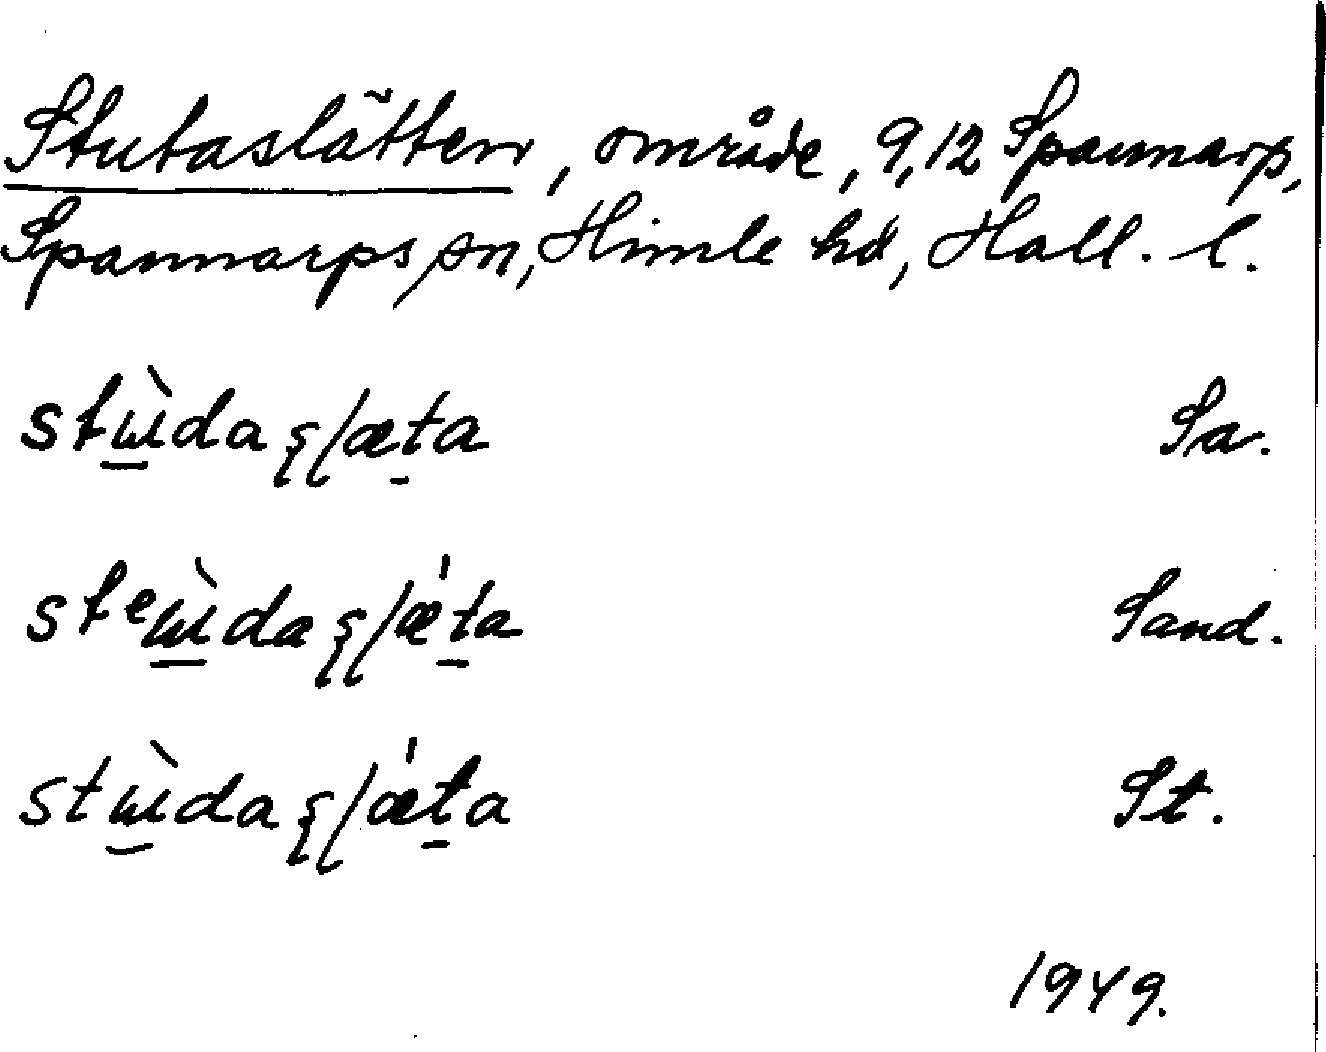 Stutaslätten, område, 9,12 Spannarp,
Spannarps sn, Himle hd, Hall. l.
stɯ̀daʂɭæta Sa.
stᵉɯ̀daʂɭæ̍ta Sand.
stɯ̀daʂɭæ̍ta St.
1949.